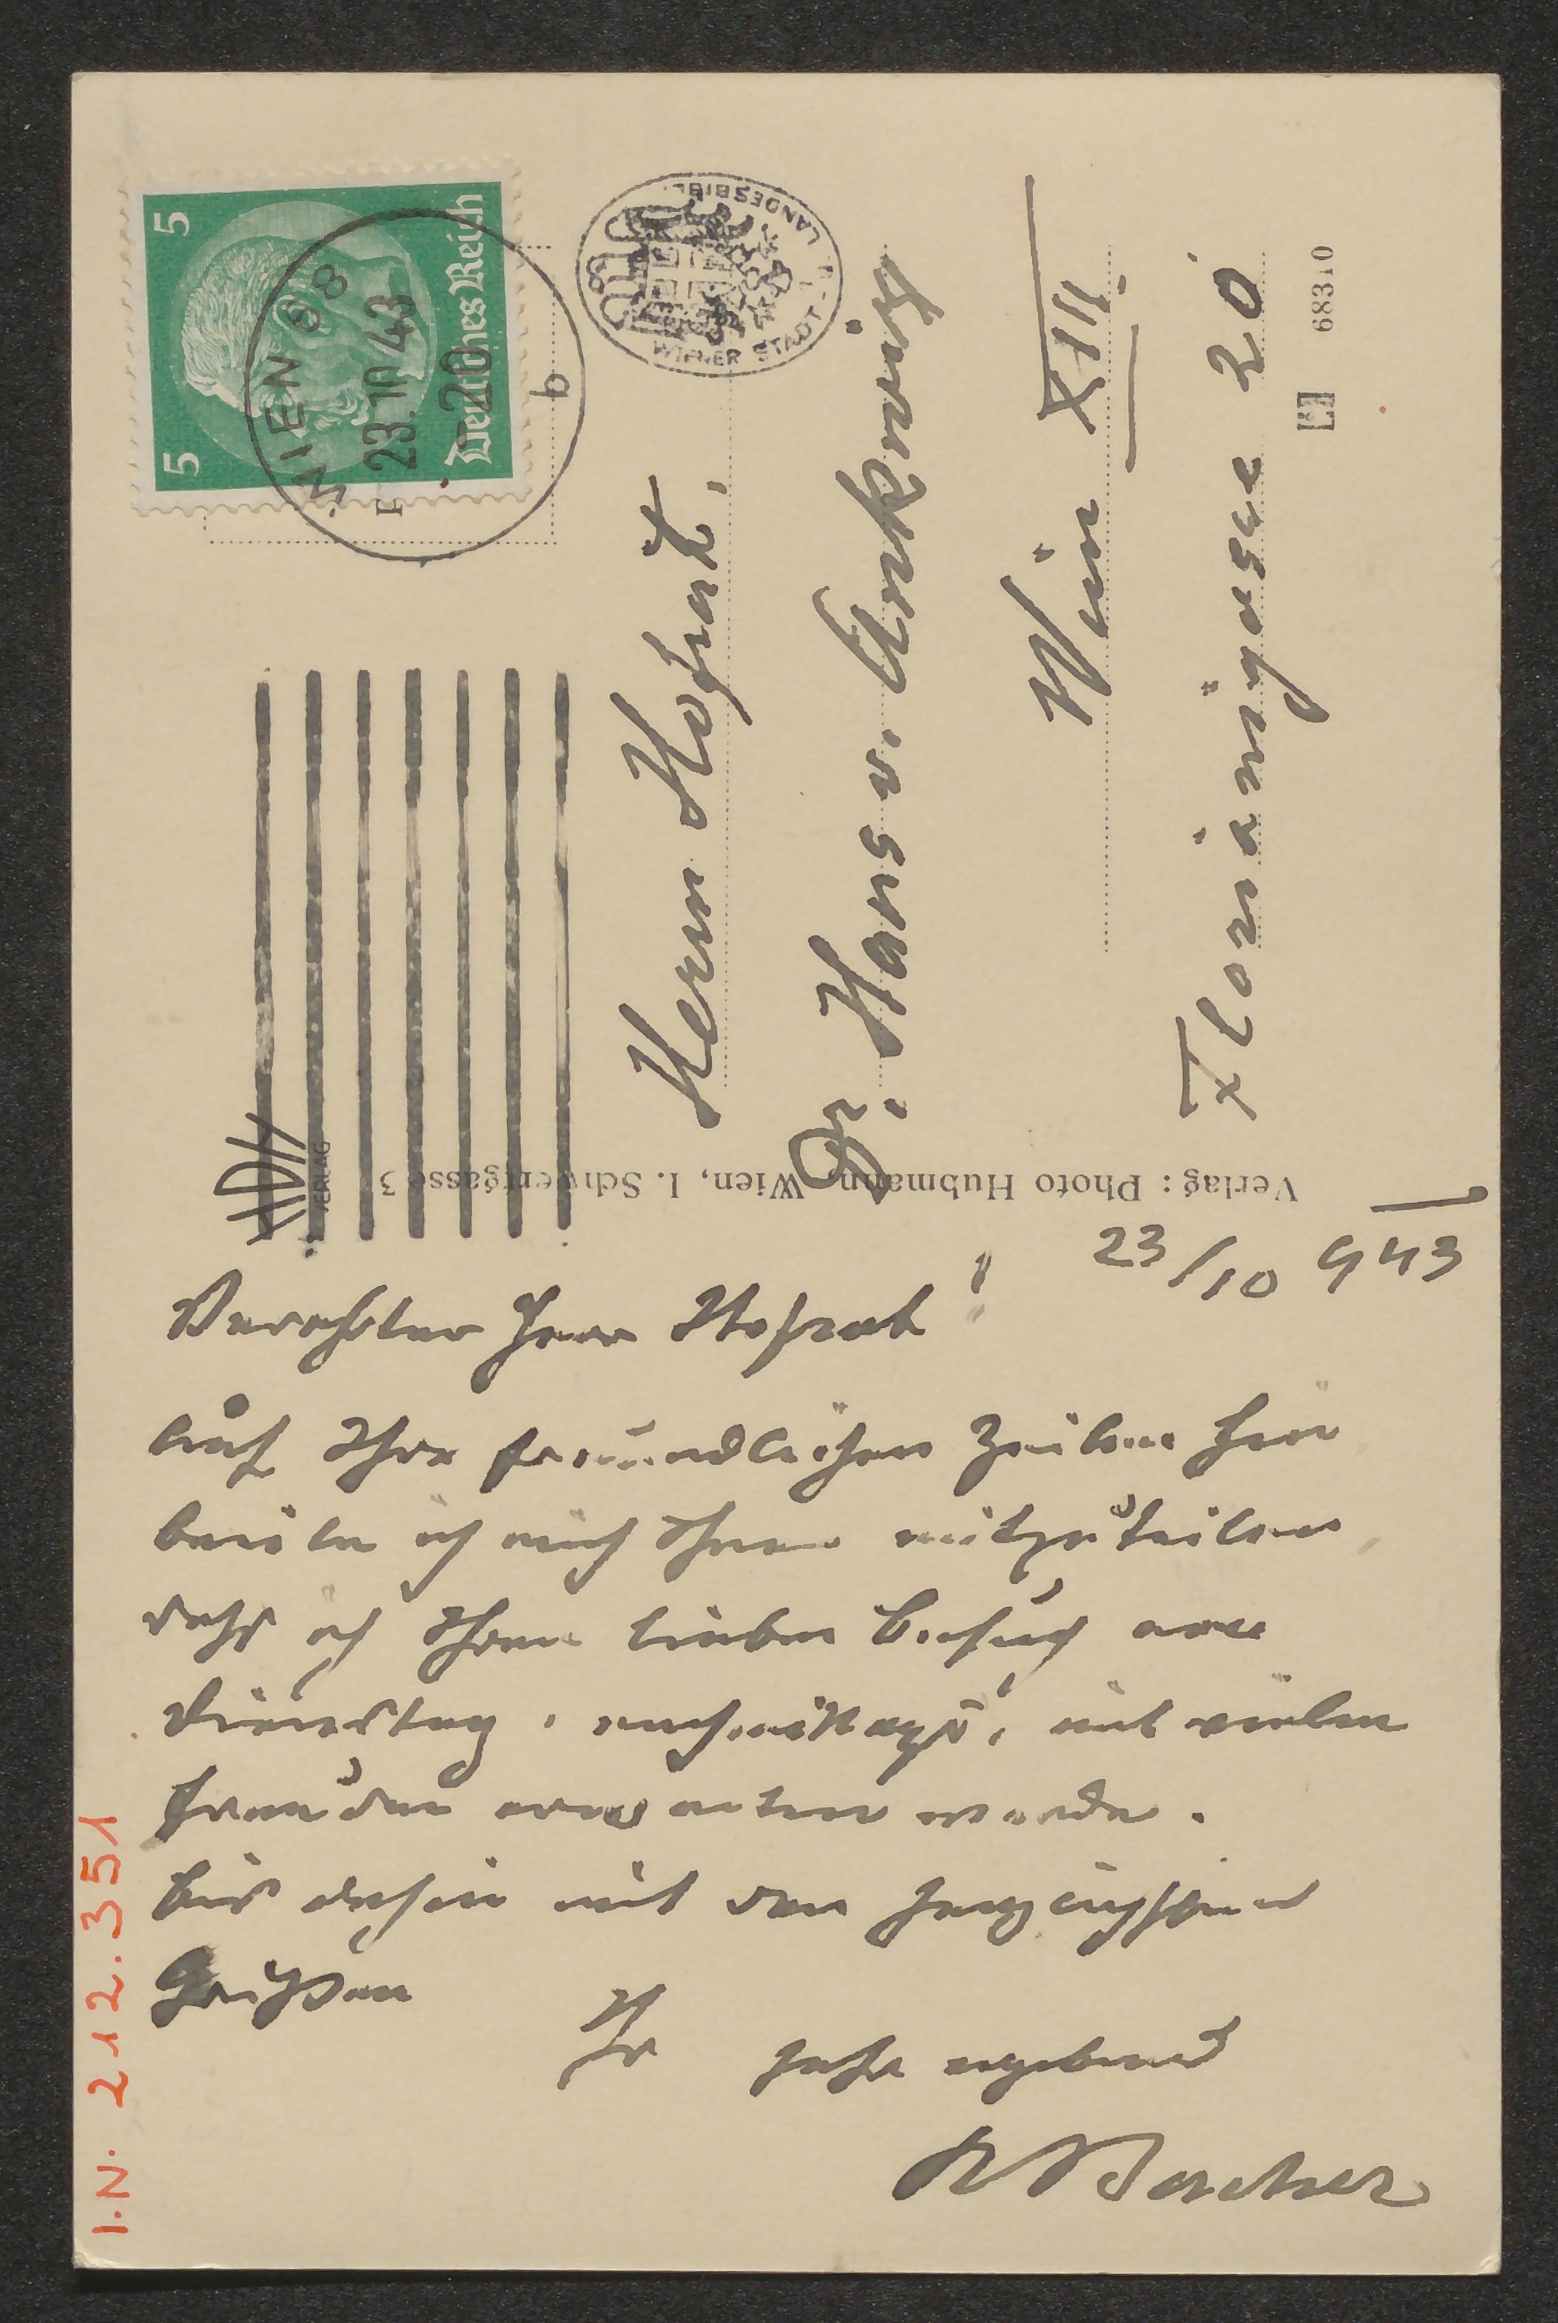 5
5
Deutsches Reich
WIEN 68
23.10 43
-20
b
WIENER STADT- U. LANDESBIBL.
Herrn Hofrat.
Dr. Hans v. Ankwicz
Wien XIII.
Florianigasse 20
68310
Verlag: Photo Hubmann, Wien, I. Schwertgasse 3
VERLAG
23/10 943
Verehrter Herr Hofrat!
Auf Ihre freundlichen Zeilen hin
beeile ich mich Ihnen mitzuteilen,
dass ich Ihren lieben Besuch am
Dienstag, nachmittags, mit vielen
Freuden erwarten werde.
Bis dahin mit den herzlichsten
Grüßen
Ihr sehr ergebener
I.N. 212.351